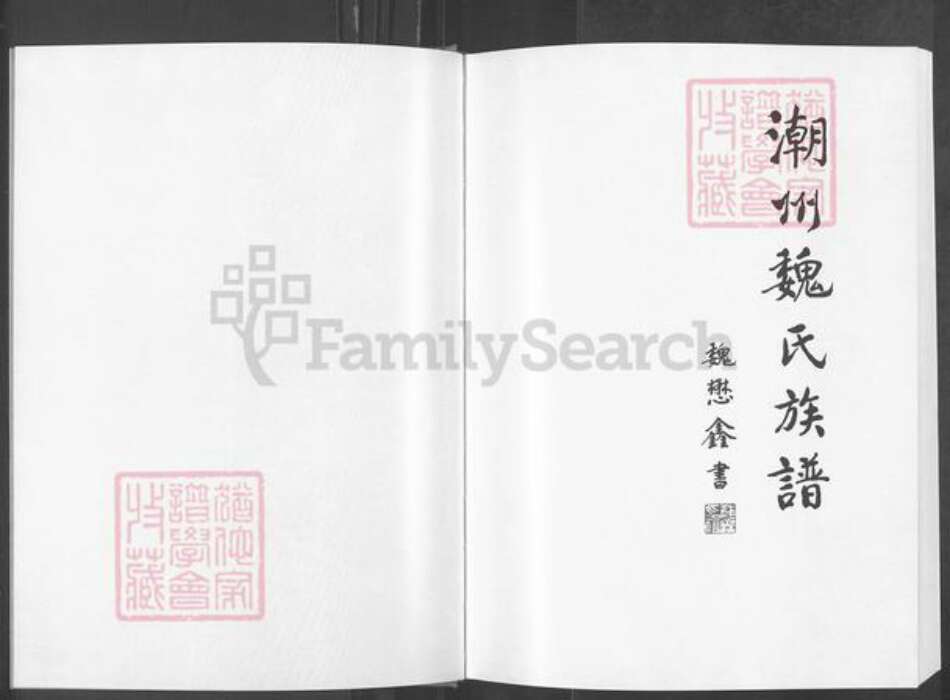 潮州魏氏族譜
魏懋鑫書
猶他家
譜學會
收藏
猶他家
譜學會
收藏
FamilySearch